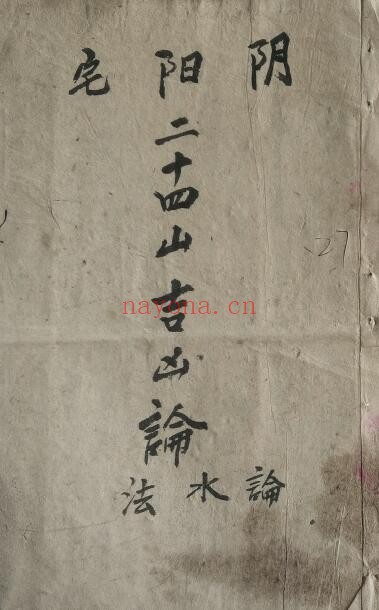 阴阳宅
二十四山吉凶論
論水法
27
nayona.cn